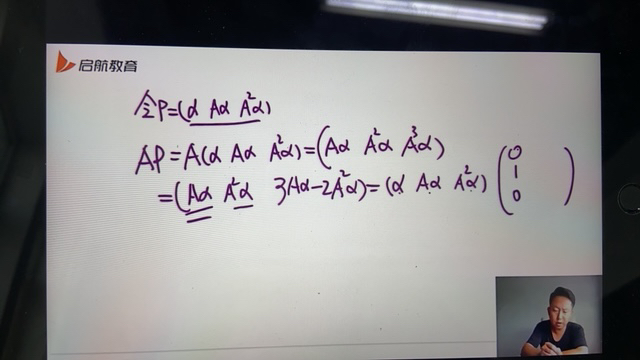 启航教育
令P=(α Aα A²α)
AP=A(α Aα A²α)=(Aα A²α A³α)
=(Aα A²α 3Aα-2A²α)=(α Aα A²α) (0
1
0 )